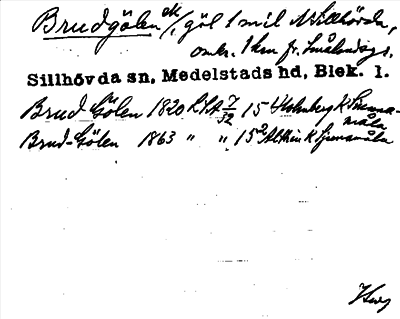 Brudgölen, göl 1 mil N Sillhövda,
omkr. 1 km fr. Smålandsgr.
Sillhövda sn, Medelstads hd, Blek. l.
Brud-Gölen 1820 LSA 7/32 15 Holmberg K
måla
Brud-Gölen 1863 " " 15